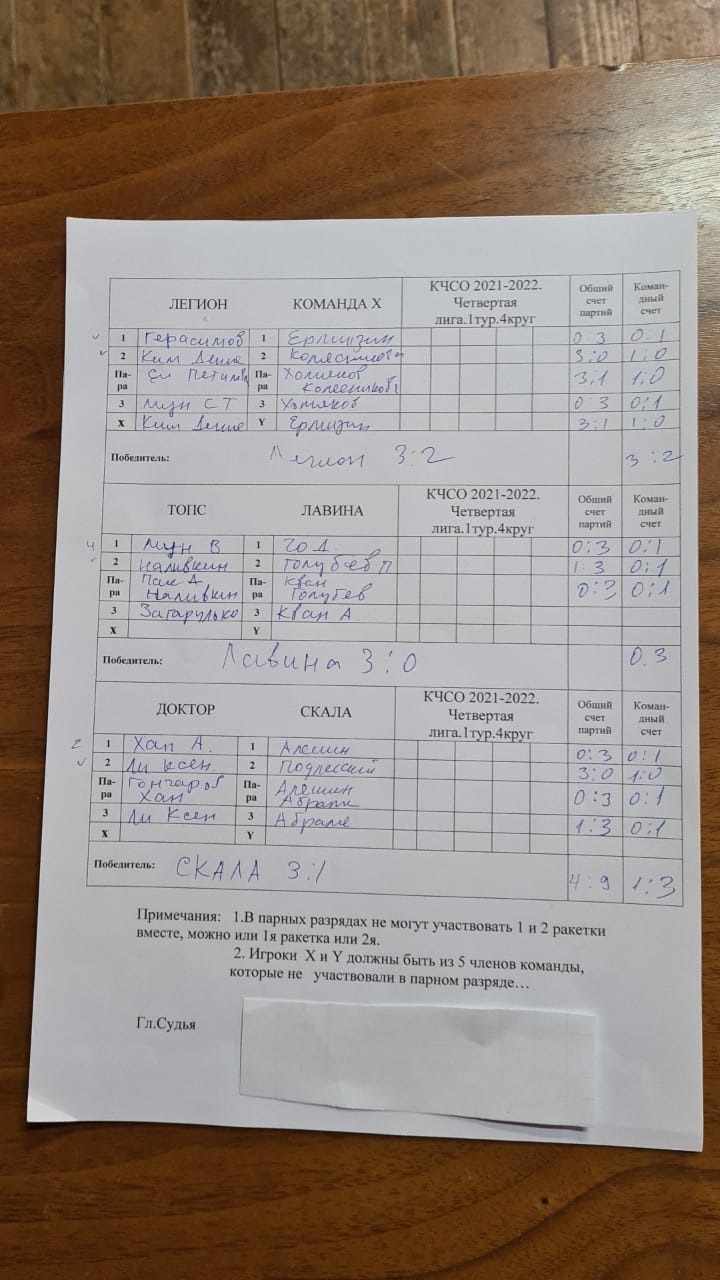 ЛЕГИОН КОМАНДА Х КЧСО 2021-2022. Четвертая лига.1тур.4круг Общий счет партий Коман-дный счет
1 Герасимов 1 Ермизин 0:3 0:1
2 Ким 2 3:0 1:0
Па-ра Ен Па-ра Холияков 3:1 1:0
3 Мун СТ 3 0:3 0:1
Х Ким Y Ермизин 3:1 1:0
Победитель: Легион 3:2 3:2
ТОПС ЛАВИНА КЧСО 2021-2022. Четвертая лига.1тур.4круг Общий счет партий Коман-дный счет
1 Мун В 1 Чо Д. 0:3 0:1
2 Наливкин 2 Голубев П 1:3 0:1
Па-ра Пак А Па-ра Кван 0:3 0:1
Наливкин Голубев
3 Загарулько 3 Кван А.
Х Y
Победитель: Лавина 3:0 0:3
ДОКТОР СКАЛА КЧСО 2021-2022. Четвертая лига.1тур.4круг Общий счет партий Коман-дный счет
1 Хан А. 1 Алешин 0:3 0:1
2 Ли Ксен. 2 Подлесский 3:0 1:0
Па-ра Гончаров Па-ра Алешин 0:3 0:1
Хан
3 Ли Ксен 3 1:3 0:1
Х Y
Победитель: СКАЛА 3:1 4:9 1:3
Примечания: 1.В парных разрядах не могут участвовать 1 и 2 ракетки
вместе, можно или 1я ракетка или 2я.
2. Игроки Х и Y должны быть из 5 членов команды,
которые не участвовали в парном разряде…
Гл.Судья